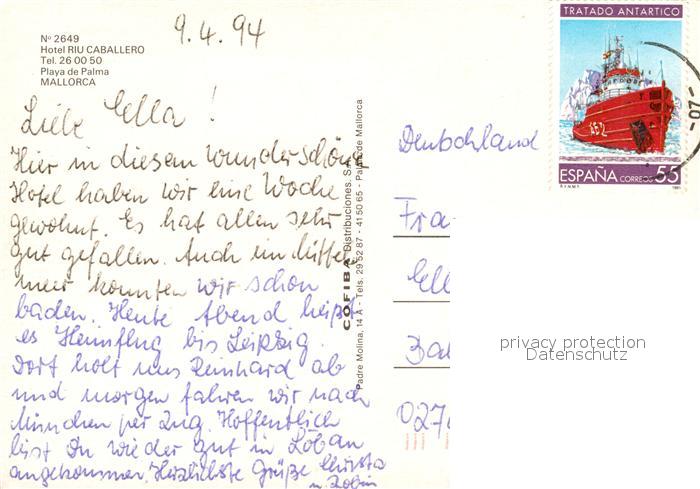 Nº 2649
Hotel RIU CABALLERO
Tel. 26 00 50
Playa de Palma
MALLORCA
9.4.94
Liebe Ella!
Hier in diesem wunderschönen
Hotel haben wir eine Woche
gewohnt. Es hat allen sehr
gut gefallen. Auch im Mittel-
meer konnten wir schon
baden. Heute Abend heißt
es Heimflug bis Leipzig.
Dort holt uns Reinhard ab
und morgen fahren wir nach
München per Zug. Hoffentlich
bist Du wieder gut in Löbau
angekommen. Herzlichste Grüße Christa
u. Robin
COFIBA Distribuciones, S.
Padre Molina, 14 A - Tels. 29 52 87 - 41 50 65 - Palma de Mallorca
TRATADO ANTARTICO
ESPAÑA CORREOS 55
Deutschland
Fra
Ell
Ba
027
privacy protection
Datenschutz